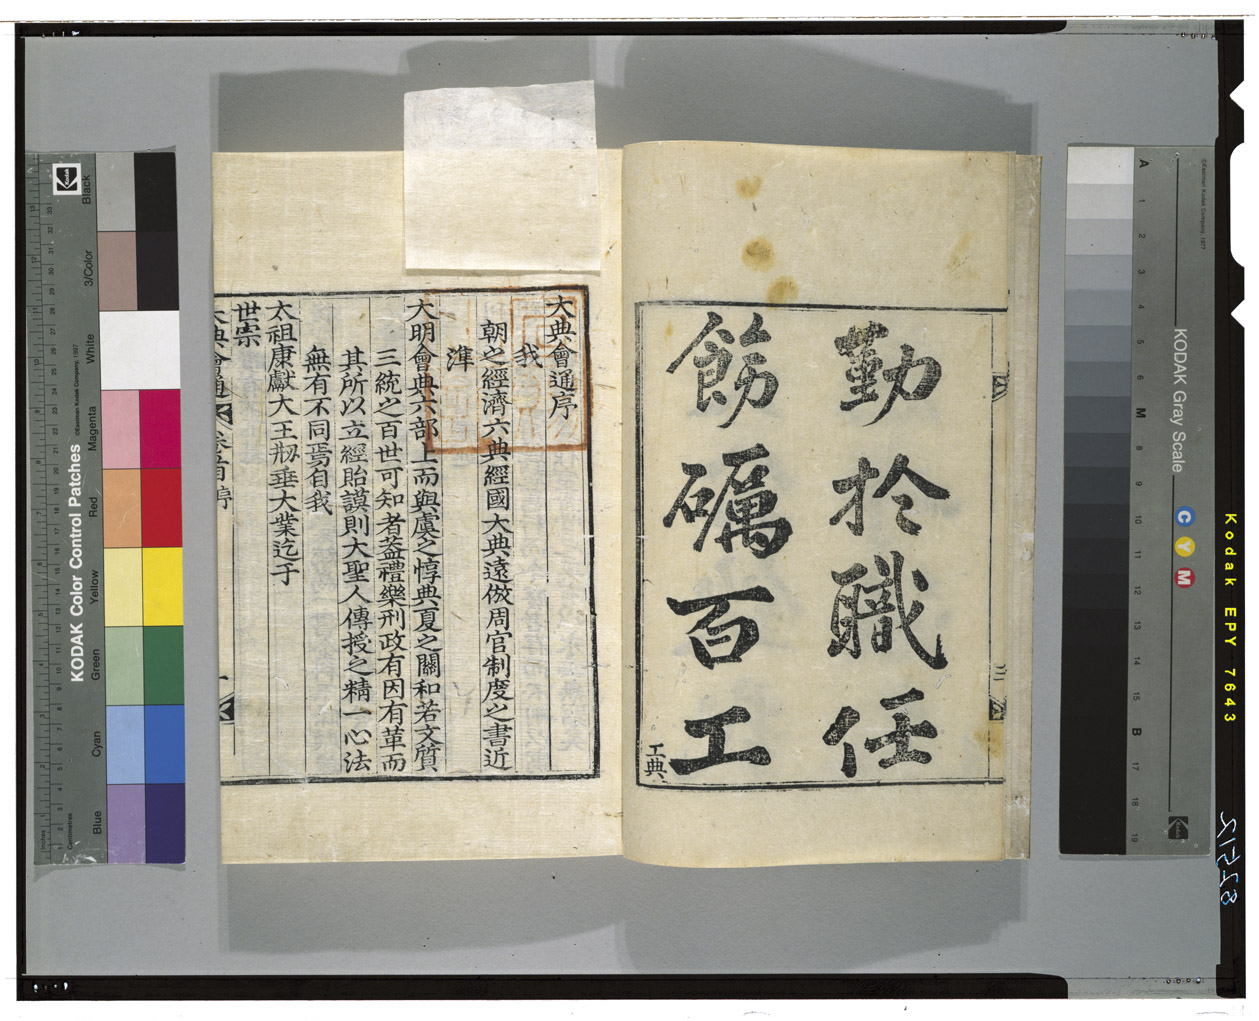 勤於職任
飭礪百工
工典
大典會通序
我
朝之經濟六典經國大典遠倣周官制度之書近
準
大明會典六部上而與虞之惇典夏之關和若文質
三統之百世可知者蓋禮樂刑政有因有革而
其所以立經貽謨則大聖人傳授之精一心法
無有不同焉有我
太祖康獻大王刱垂大業迄于
世宗
大典會通
KODAK Color Control Patches
©Eastman Kodak Company, 1997
Kodak
Black
3/Color
White
Magenta
Red
Yellow
Green
Cyan
Blue
Inches
Centimetres
KODAK Gray Scale
©Eastman Kodak Company, 1977
A 1 2 3 4 5 6 M 8 9 10 11 12 13 14 15 B 17 18 19
C
Y
M
Kodak
Kodak EPY 7643
21528